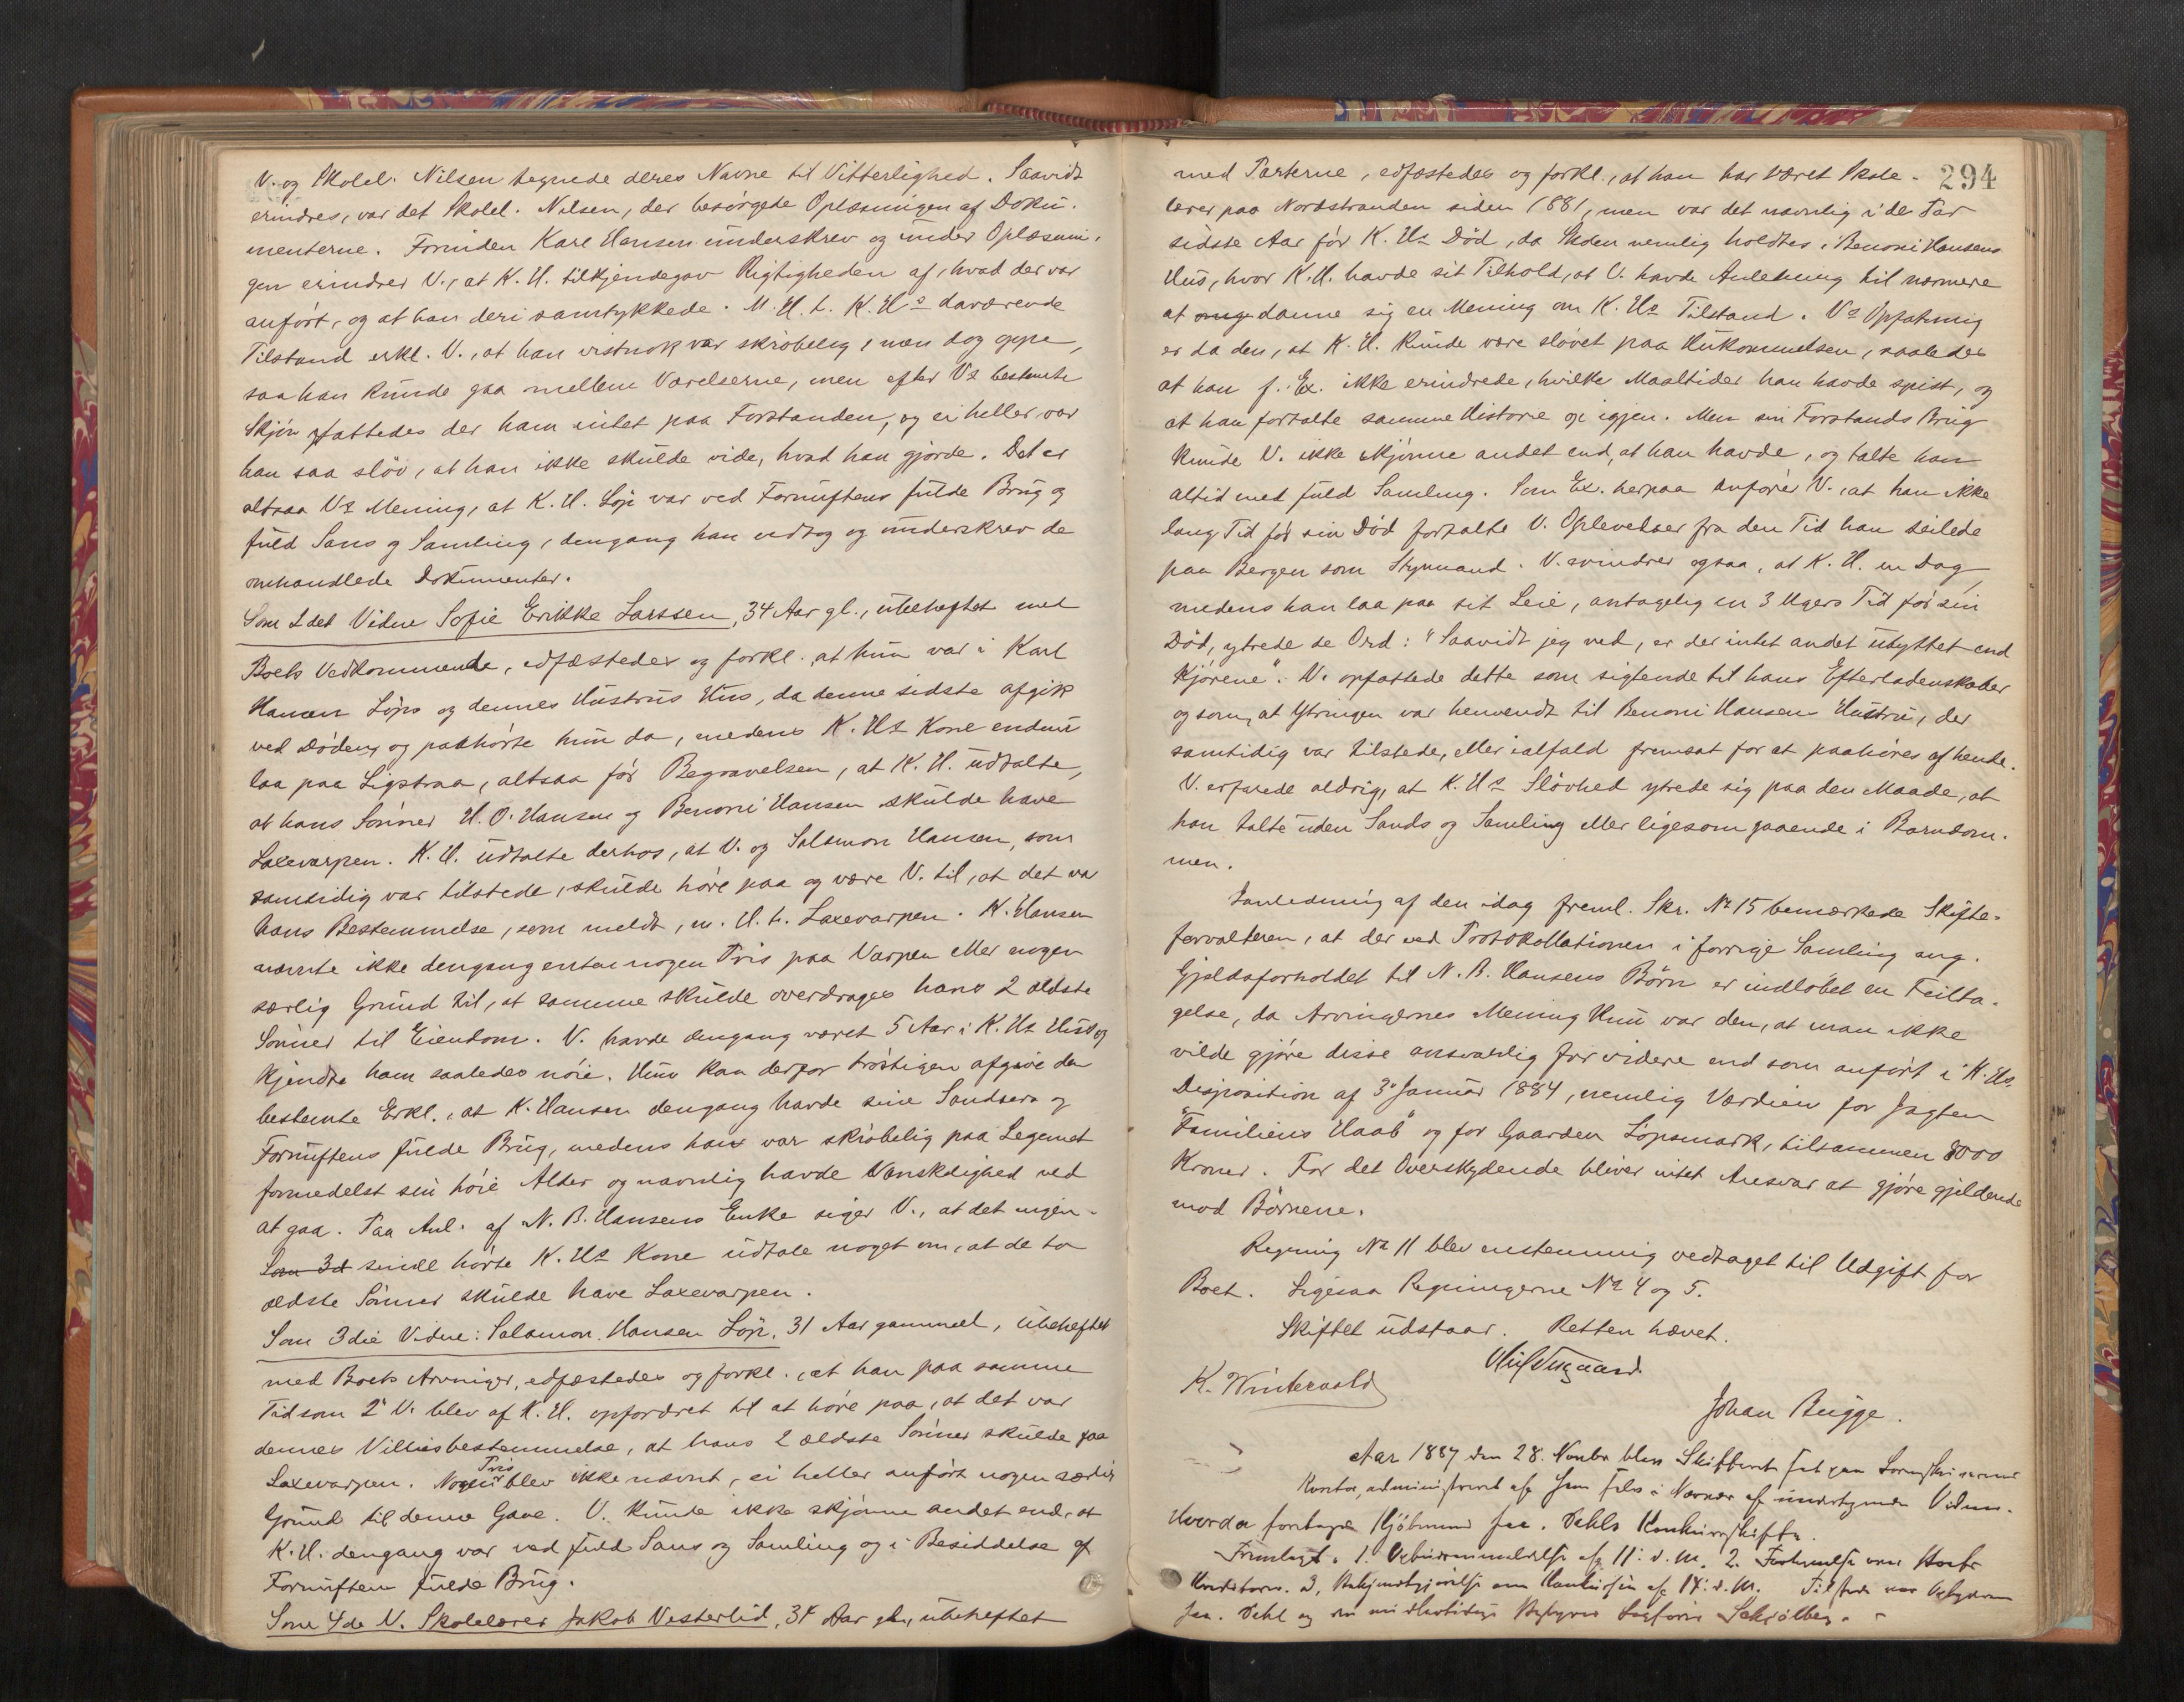 V. og Skolel. Nilsen tegnede deres Navne til Vitterlighed. Saavidt
erindres, var det Skolel. Nilsen, der besørgede Oplæsningen af Doku-
menterne. Forinden Karl Hansen underskrev og under Oplæsnin-
gen erindrer V., at K. H. tilkjendegav Rigtigheden af, hvad der var
anført, og at han deri samtykkede. M. H. t. K. Hs daværende
Tilstand erkl. V., at han vistnok var skrøbelig, men dog oppe,
saa han kunde gaa mellem Værelserne, men efter Vs bestemte
Skjøn fattedes der ham intet paa Forstanden, og ei heller var
han saa sløv, at han ikke skulde vide, hvad han gjorde. Det er
altsaa Vs Mening, at K. H. Løp var ved Fornuftens fulde Brug og
fuld Sans og Samling, dengang han vedtog og underskrev de
omhandlede Dokumenter.
Som 2det Vidne Sofie Erikke Larssen, 34 Aar gl., ubeheftet med
Boets Vedkommende, edfæstedes og forkl. at hun var i Karl
Hansen Løps og dennes Hustrus Hus, da denne sidste afgik
ved Døden, og paahørte hun da, medens K. Hs Kone endnu
laa paa Ligstraa, altsaa før Begravelsen, at K. H. udtalte,
at hans Sønner H. O. Hansen og Benoni Hansen skulde have
Laxevarpen. K. H. udtalte derhos, at V. og Salamon Hansen, som
samtidig var tilstede, skulde høre paa og være V. til, at det var
hans Bestemmelse, som meldt, m. H. t. Laxevarpen. K. Hansen
nævnte ikke dengang enten nogen Pris paa Varpen eller nogen
særlig Grund til, at samme skulde overdrages hans 2 ældste
Sønner til Eiendom. V. havde dengang været 5 Aar i K. Hs Hus og
kjendte ham saaledes nøie. Hun kan derfor trøstigen afgive den
bestemte Erkl., at K. Hansen dengang havde sine Sandsers og
Fornuftens fulde Brug, medens han var skrøbelig paa Legemet
formedelst sin høie Alder og navnlig havde Vanskelighed ved
at gaa. Paa Anl. af N. B. Hansens Enke siger V., at det ingen-
Som 3d sinde hørte K. Hs Kone udtale noget om, at de to
ældste Sønner skulde have Laxevarpen.
Som 3die Vidne: Salamon Hansen Løp, 31 Aar gammel, ubeheftet
med Boets Arvinger, edfæstedes og forkl., at han paa samme
Tid som 2t V. blev af K. H. opfordret til at høre paa, at det var
dennes Villiesbestemmelse, at hans 2 ældste Sønner skulde faa
Laxevarpen. Nogen Pris blev ikke nævnt, ei heller anført nogen særlig
Grund til denne Gave. V. kunde ikke skjønne andet end, at
K. H. dengang var ved fuld Sans og Samling og i Besiddelse af
Fornuftens fulde Brug.
Som 4de V. Skolelærer Jakob Vesterlid, 34 Aar gl., ubeheftet
294
med Parterne, edfæstedes og forkl., at han har været Skole-
lærer paa Nordstranden siden 1881, men var det navnlig i de Par
sidste Aar før K. Hs Død, da Skolen nemlig holdtes i Benoni Hansens
Hus, hvor K. H. havde sit Tilhold, at V. havde Anledning til nærmere
at danne sig en Mening om K. Hs Tilstand. Vs Opfatning
er da den, at K. H. kunde være sløvet paa Hukommelsen, saaledes
at han f. Ex. ikke erindrede, hvilke Maaltider han havde spist, og
at han fortalte samme Historie op igjen. Men sin Forstands Brug
kunde V. ikke skjønne andet end, at han havde, og talte han
altid med fuld Samling. Som Ex. herpaa anfører V., at han ikke
lang Tid før sin Død fortalte V. Oplevelser fra den Tid han seilede
paa Bergen som Styrmand. V. erindrer ogsaa, at K. H. en Dag,
medens han laa paa sit Leie, antagelig en 3 Ugers Tid før sin
Død, ytrede de Ord: "Saavidt jeg ved, er der intet andet ubyttet end
Kjørene". V. opfattede dette som sigtende til hans Efterladenskaber
og som, at Ytringen var henvendt til Benoni Hansens Hustru, der
samtidig var tilstede, eller ialfald fremsat for at paahøres af hende.
V. erfarede aldrig, at K. Hs Sløvhed ytrede sig paa den Maade, at
han talte uden Sands og Samling eller ligesom gaaende i Barndom-
men.
Ianledning af den idag freml. Skr. No 15 bemærkede Skifte-
forvalteren, at der ved Protokollationen i forrige Samling ang.
Gjældsforholdet til N. B. Hansens Børn er indløbet en Feilta-
gelse, da Arvingernes Mening kun var den, at man ikke
vilde gjøre disse ansvarlig for videre end som anført i K. Hs
Disposition af 3' Januar 1884, nemlig Værdien for Jagten
"Familiens Haab" og for Gaarden Løpsmark, tilsammen 8000
Kroner. For det Overskydende bliver intet Ansvar at gjøre gjeldende
mod Børnene.
Regning No 11 blev enstemmig vedtaget til Udgift for
Boet. Ligesaa Regningerne No 4 og 5.
Skiftet udstaar. Retten hævet.
K. Winterwold
Johan Bugge.
Aar 1887 den 28. Novbr blev Skifteret sat paa Sorenskriverens
Kontor, administreret af i Nærvær af undertegnede Vidner.
Hvorda foretoges Kjøbmand Dahls Konkursskifte.
Fremlagt: 1. af 11' d. M. 2. over Boets
Kreditorer. 3, Bekjendtgjørelse om Konkursen af 14' d. M. Tilstede var
Dahl og den midlertidige Bestyrer Sagfører Schjølberg.